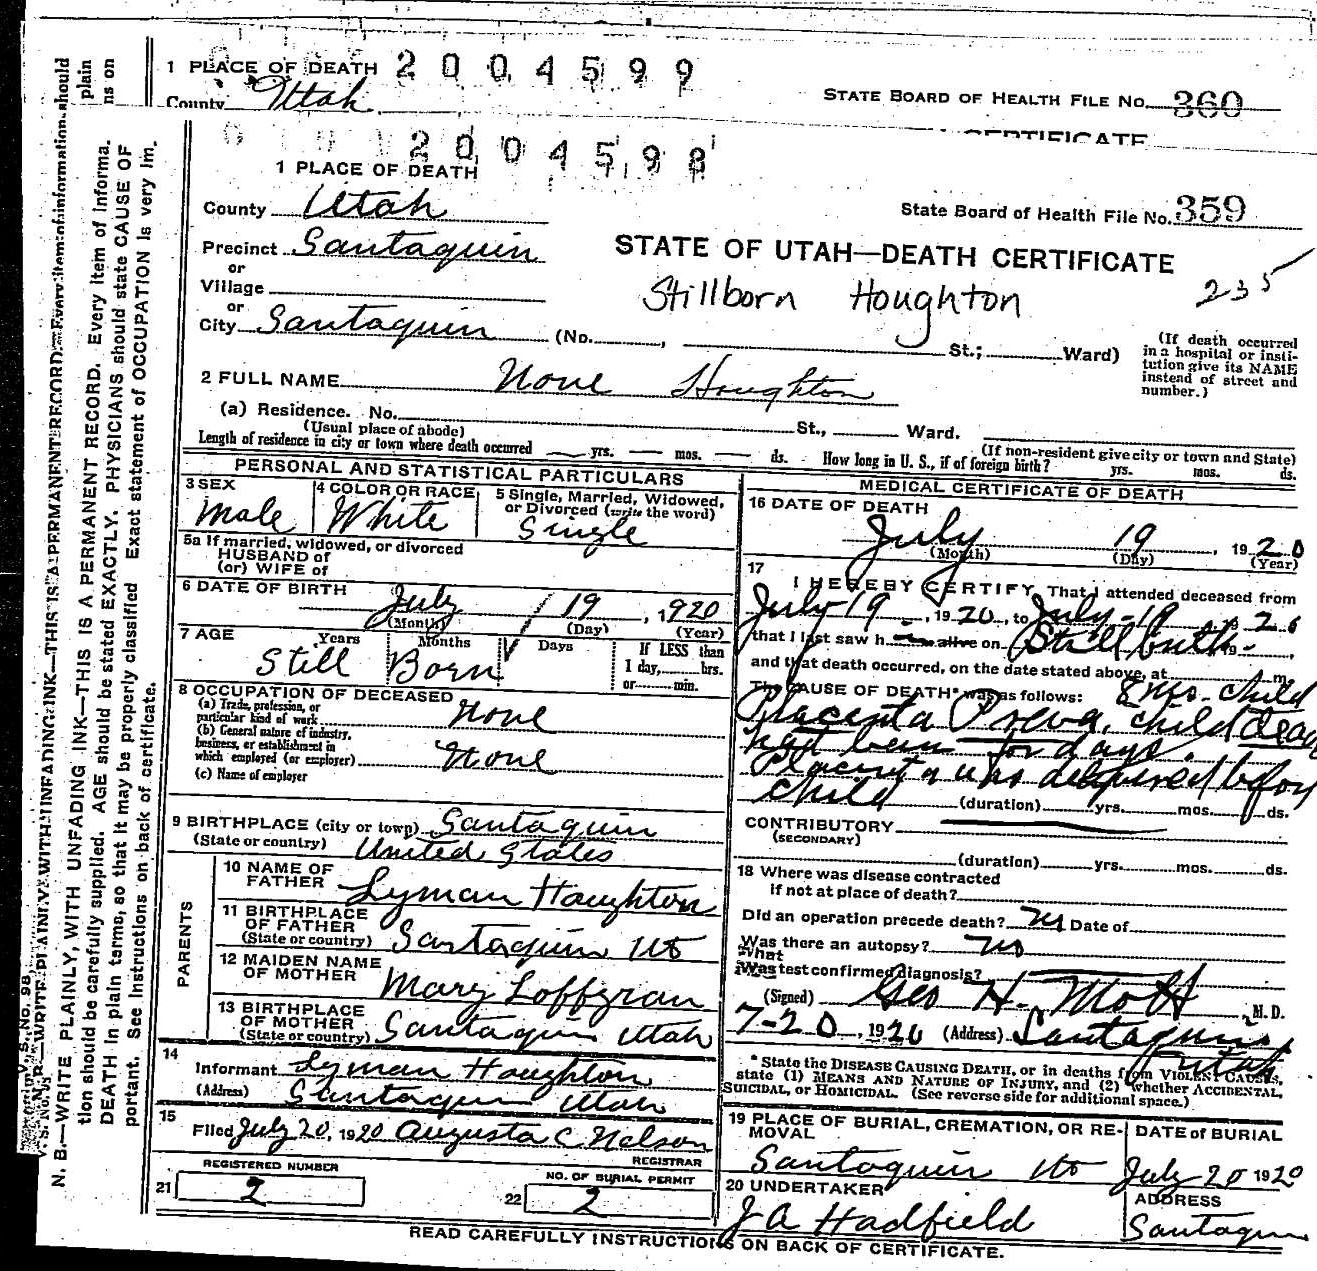 1 PLACE OF DEATH 2004599
County Utah
STATE BOARD OF HEALTH FILE NO. 360
CERTIFICATE
2004598
1 PLACE OF DEATH
County Utah
State Board of Health File No. 359
Precinct Santaquin
STATE OF UTAH—DEATH CERTIFICATE
or
Village
Stillborn Houghton
235
or
City Santaquin (No. , St.; Ward)
(If death occurred in a hospital or insti-
tution give its NAME
instead of street and
number.)
2 FULL NAME None Houghton
(a) Residence. No. St., Ward.
(Usual place of abode)
(If non-resident give city or town and State)
Length of residence in city or town where death occurred yrs. mos. ds. How long in U. S., if of foreign birth? yrs. mos. ds.
PERSONAL AND STATISTICAL PARTICULARS
3 SEX
Male
4 COLOR OR RACE
White
5 Single, Married, Widowed,
or Divorced (write the word)
Single
5a If married, widowed, or divorced
HUSBAND of
(or) WIFE of
6 DATE OF BIRTH July 19, 1920
(Month) (Day) (Year)
7 AGE Years Months Days If LESS than
1 day, hrs.
or min.
Still Born
8 OCCUPATION OF DECEASED
(a) Trade, profession, or
particular kind of work None
(b) General nature of industry,
business, or establishment in
which employed (or employer) None
(c) Name of employer
9 BIRTHPLACE (city or town) Santaquin
(State or country) United States
PARENTS
10 NAME OF
FATHER Lyman Houghton
11 BIRTHPLACE
OF FATHER
(State or country) Santaquin Ut
12 MAIDEN NAME
OF MOTHER Mary Loffgran
13 BIRTHPLACE
OF MOTHER
(State or country) Santaquin Utah
14
Informant Lyman Houghton
(Address) Santaquin Utah
15
Filed July 20, 1920 Augusta C Nelson
REGISTRAR
21 REGISTERED NUMBER
2
22 NO. OF BURIAL PERMIT
2
MEDICAL CERTIFICATE OF DEATH
16 DATE OF DEATH
July 19, 1920
(Month) (Day) (Year)
17
I HEREBY CERTIFY, That I attended deceased from
July 19, 1920, to July 19 20
that I last saw h alive on Stillbirth
and that death occurred, on the date stated above, at m.
The CAUSE OF DEATH* was as follows: 8 mo. child
Placenta Previa, child dead
had been for days.
Placenta was delivered before
child
(duration) yrs. mos. ds.
CONTRIBUTORY
(SECONDARY)
(duration) yrs. mos. ds.
18 Where was disease contracted
if not at place of death?
Did an operation precede death? No Date of
Was there an autopsy? No
What
Was test confirmed diagnosis?
(Signed) Geo H. Mott, M. D.
7-20, 1920 (Address) Santaquin,
Utah
* State the DISEASE CAUSING DEATH, or in deaths from VIOLENT CAUSES,
state (1) MEANS AND NATURE OF INJURY, and (2) whether ACCIDENTAL,
SUICIDAL, or HOMICIDAL. (See reverse side for additional space.)
19 PLACE OF BURIAL, CREMATION, OR RE-
MOVAL
Santaquin Ut
DATE of BURIAL
July 20 1920
20 UNDERTAKER
J A Hadfield
ADDRESS
Santaquin
READ CAREFULLY INSTRUCTIONS ON BACK OF CERTIFICATE.
N. B.—WRITE PLAINLY, WITH UNFADING INK—THIS IS A PERMANENT RECORD. Every item of informa-
tion should be carefully supplied. AGE should be stated EXACTLY. PHYSICIANS should state CAUSE OF
DEATH in plain terms, so that it may be properly classified. Exact statement of OCCUPATION is very im-
portant. See instructions on back of certificate.